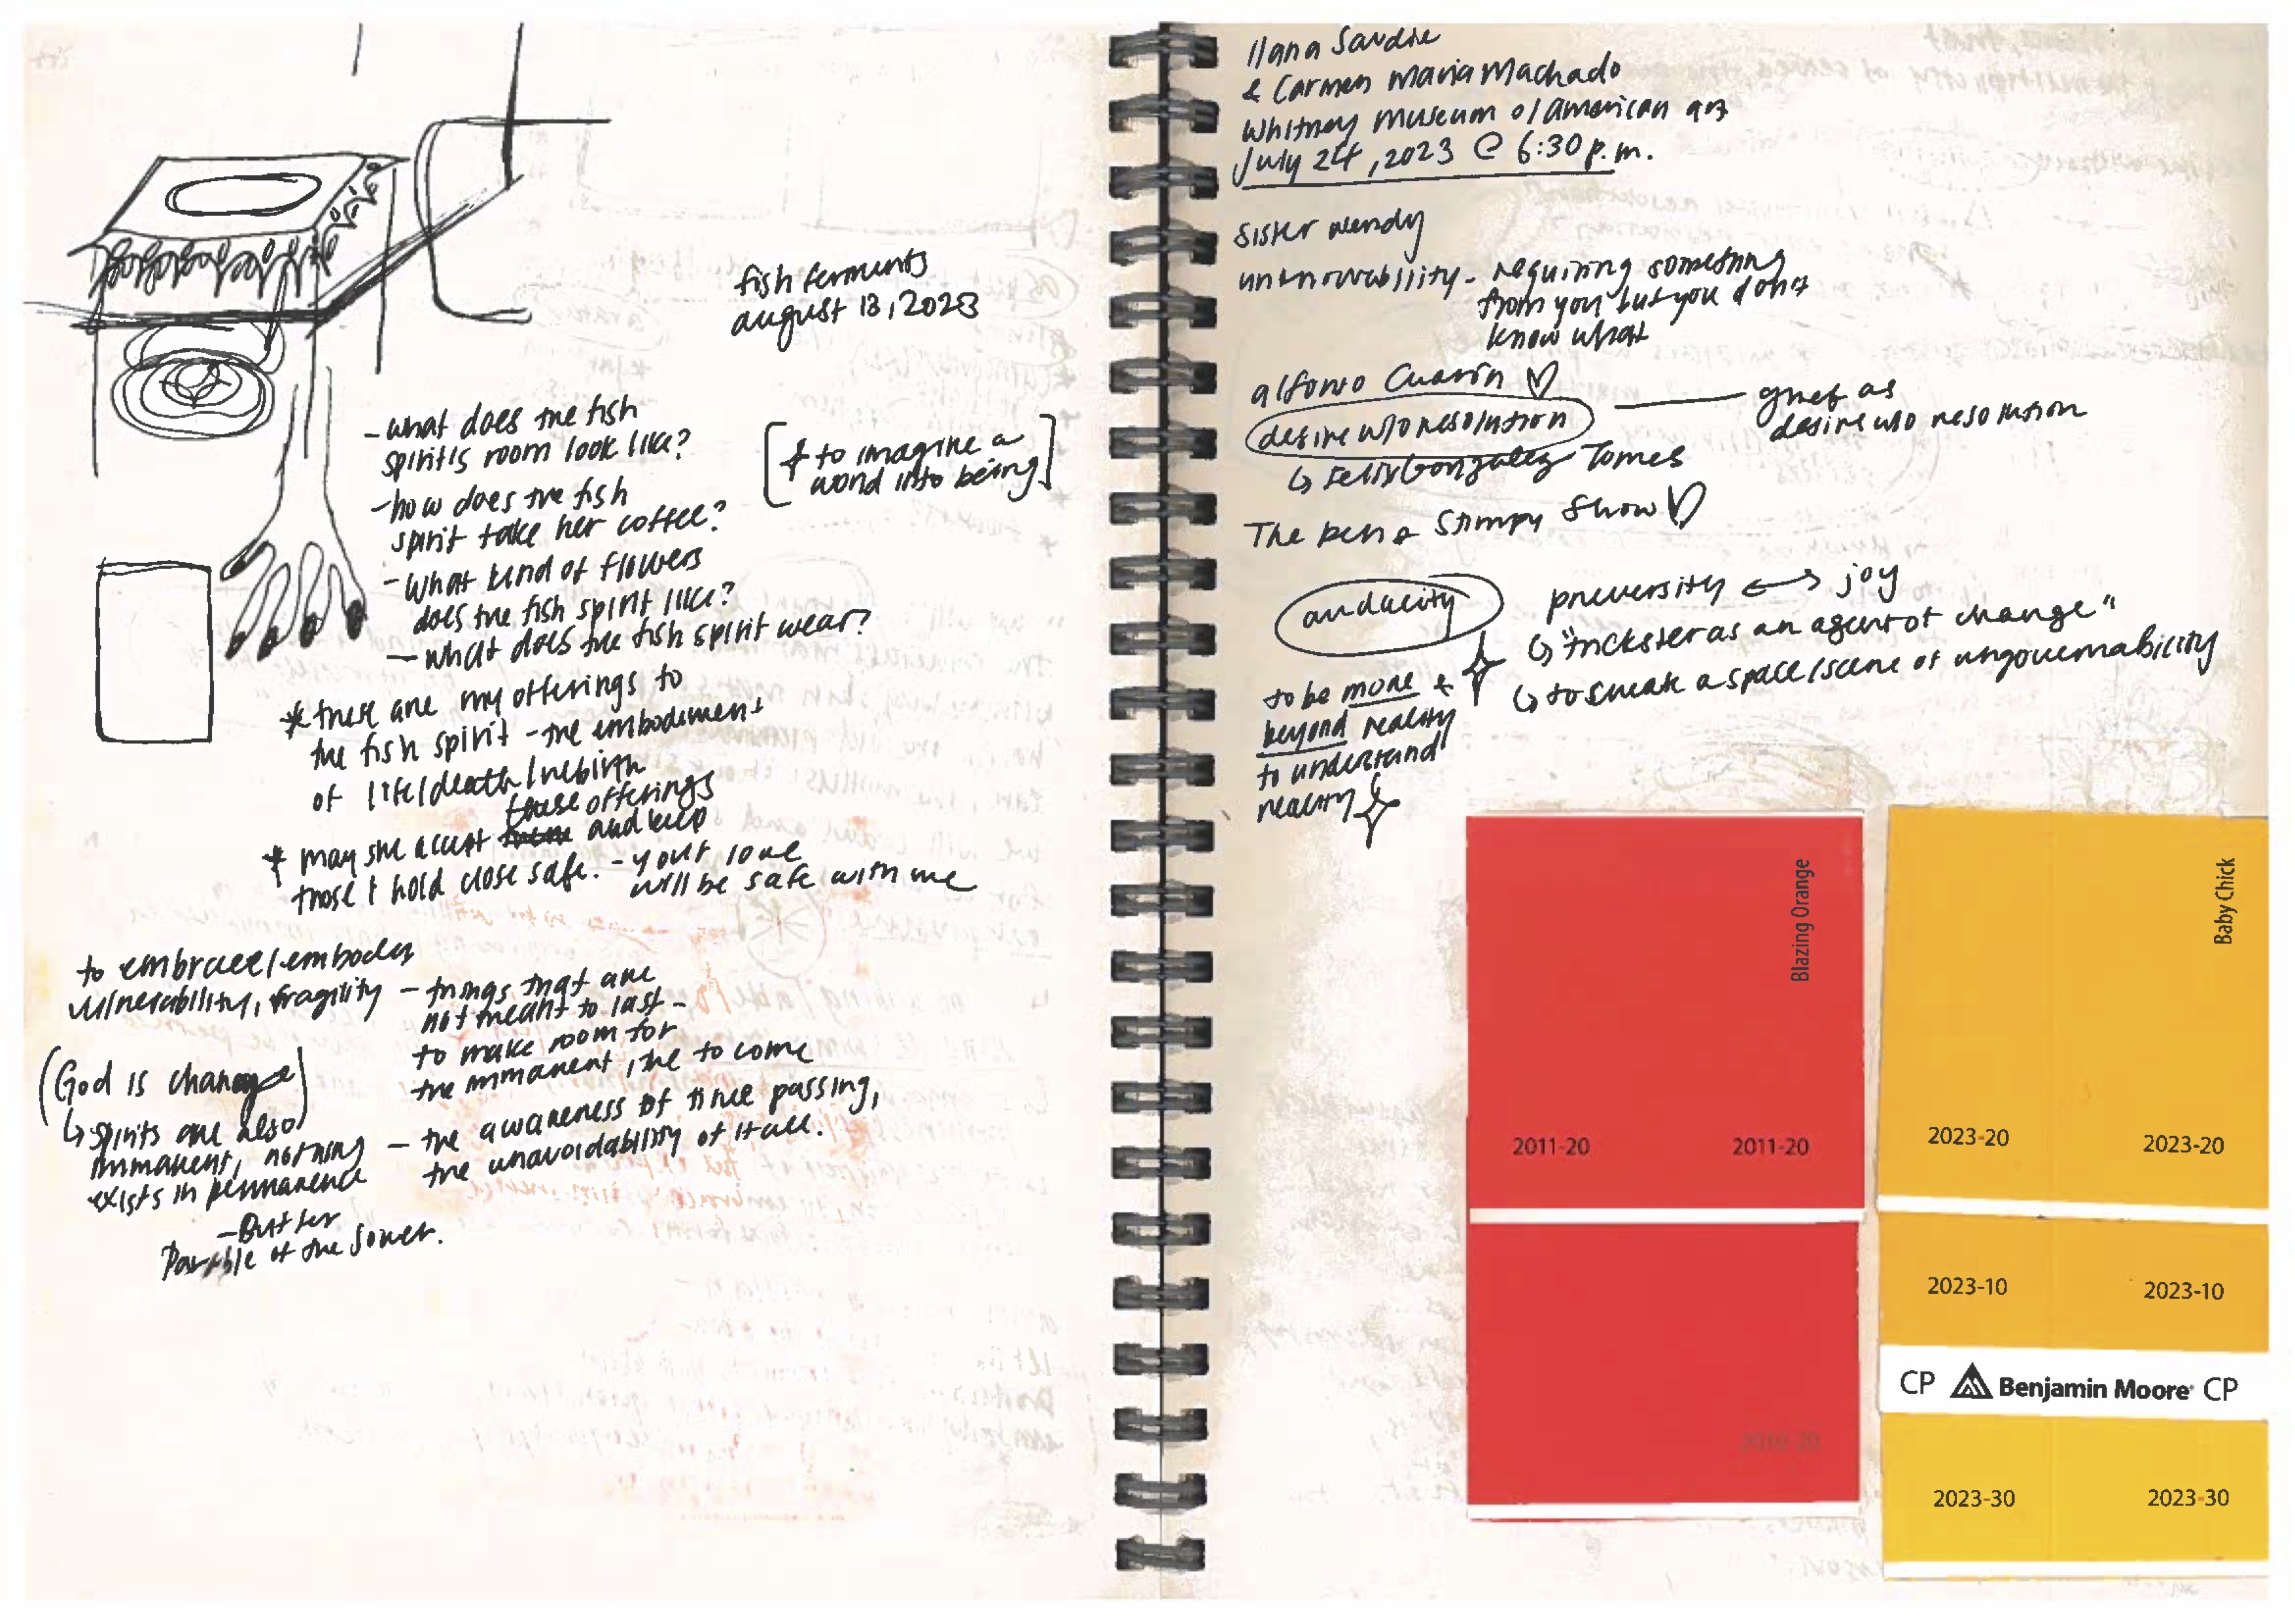 fish ferments
august 13, 2023
- what does the fish
spirit's room look like?
- how does the fish
spirit take her coffee?
- what kind of flowers
does the fish spirit like?
- what does the fish spirit wear?
[* to imagine a
world into being]
* these are my offerings to
the fish spirit - the embodiment
of life/death/rebirth
these offerings
* may she accept and keep
those I hold close safe. - your love
will be safe with me
to embrace/embody
vulnerability, fragility - things that are
not meant to last -
to make room for
the immanent, the to come
(God is change)
↳ spirits are also
immanent, nothing
exists in permanence
- the awareness of time passing,
the unavoidability of it all.
- Butler
Parable of the Sower.
Ilana Savdie
& Carmen Maria Machado
Whitney Museum of American art
July 24, 2023 @ 6:30 p.m.
Sister Wendy
unknowability - requiring something
from you but you don't
know what
alfonso Cuarón ♡
desire w/o resolution — grief as
desire w/o resolution
↳ Felix Gonzalez Torres
The Ren & Stimpy Show ♡
audacity
preversity ↔ joy
↳ "trickster as an agent of change"
↳ to sneak a space/scene of ungovernability
to be more &
beyond reality
to understand
reality
Blazing Orange
2011-20 2011-20
2010-20
Baby Chick
2023-20 2023-20
2023-10 2023-10
CP Benjamin Moore CP
2023-30 2023-30